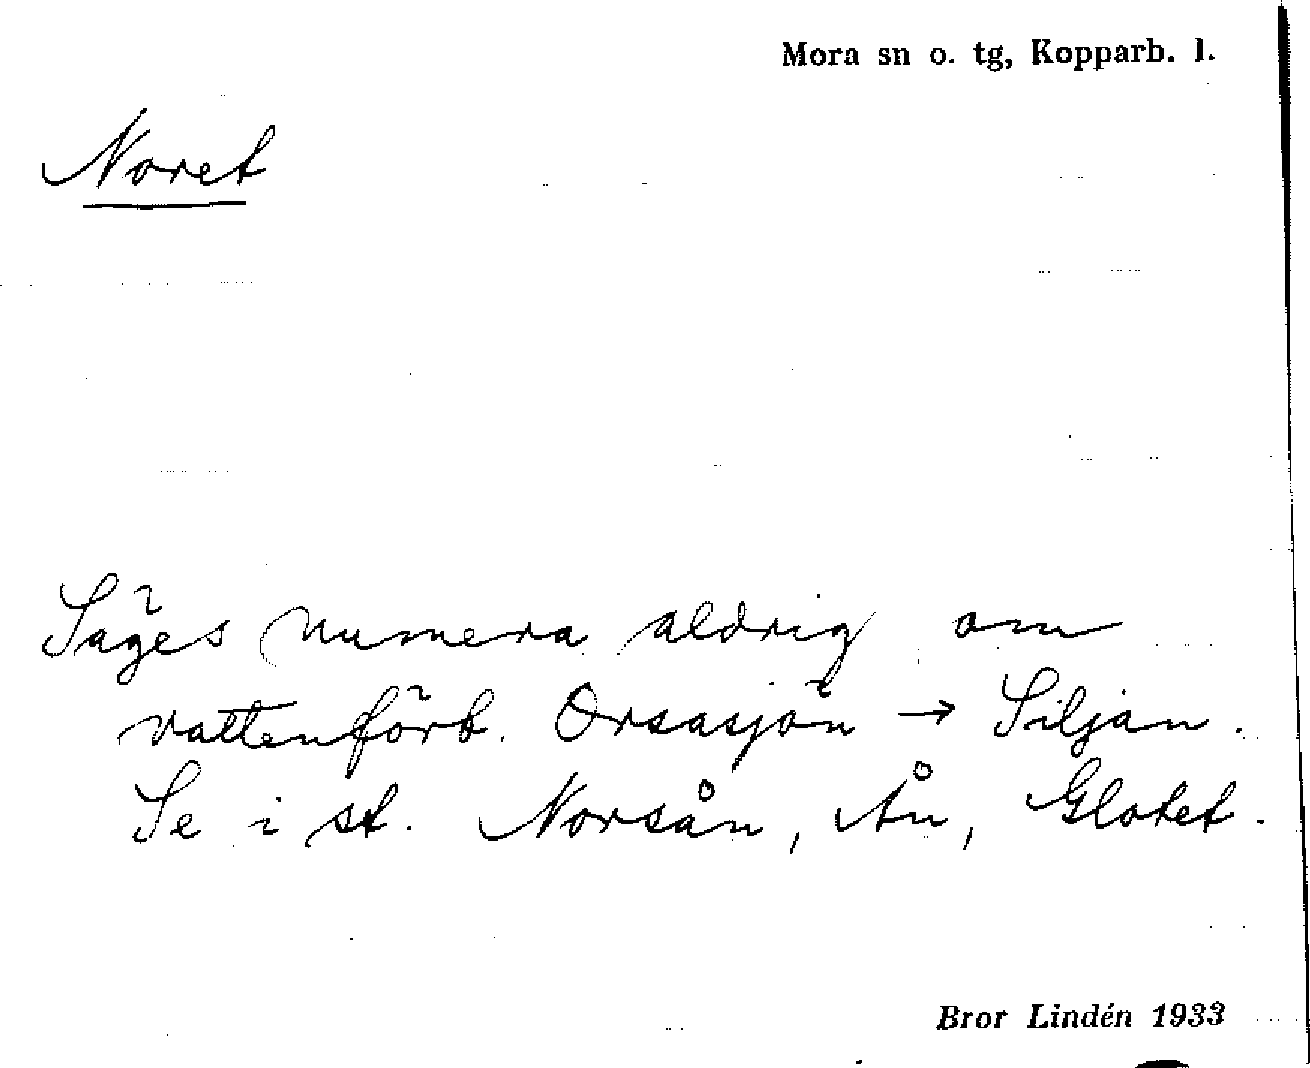 Mora sn o. tg, Kopparb. l.
Noret
Säges numera aldrig om
vattenförb. Orsasjön → Siljan.
Se i st. Norsån, Ån, Glotet.
Bror Lindén 1933